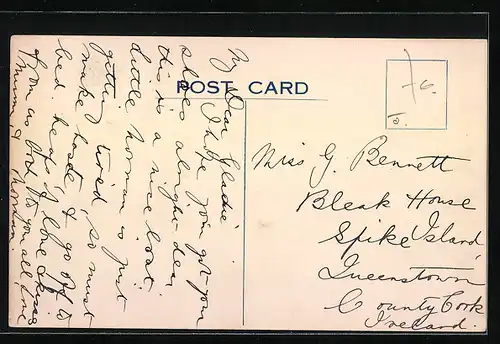 POST CARD
My Dear Gladie
I hope you got your
shoes alright dear
this is a nice boat
little Norman is just
getting tired, so must
make haste, & go off to
bed. heaps of love & kisses
from us
Mum & Norman.
Miss G. Bennett
Bleak House
Spike Island,
Queenstown
County Cork
Ireland.